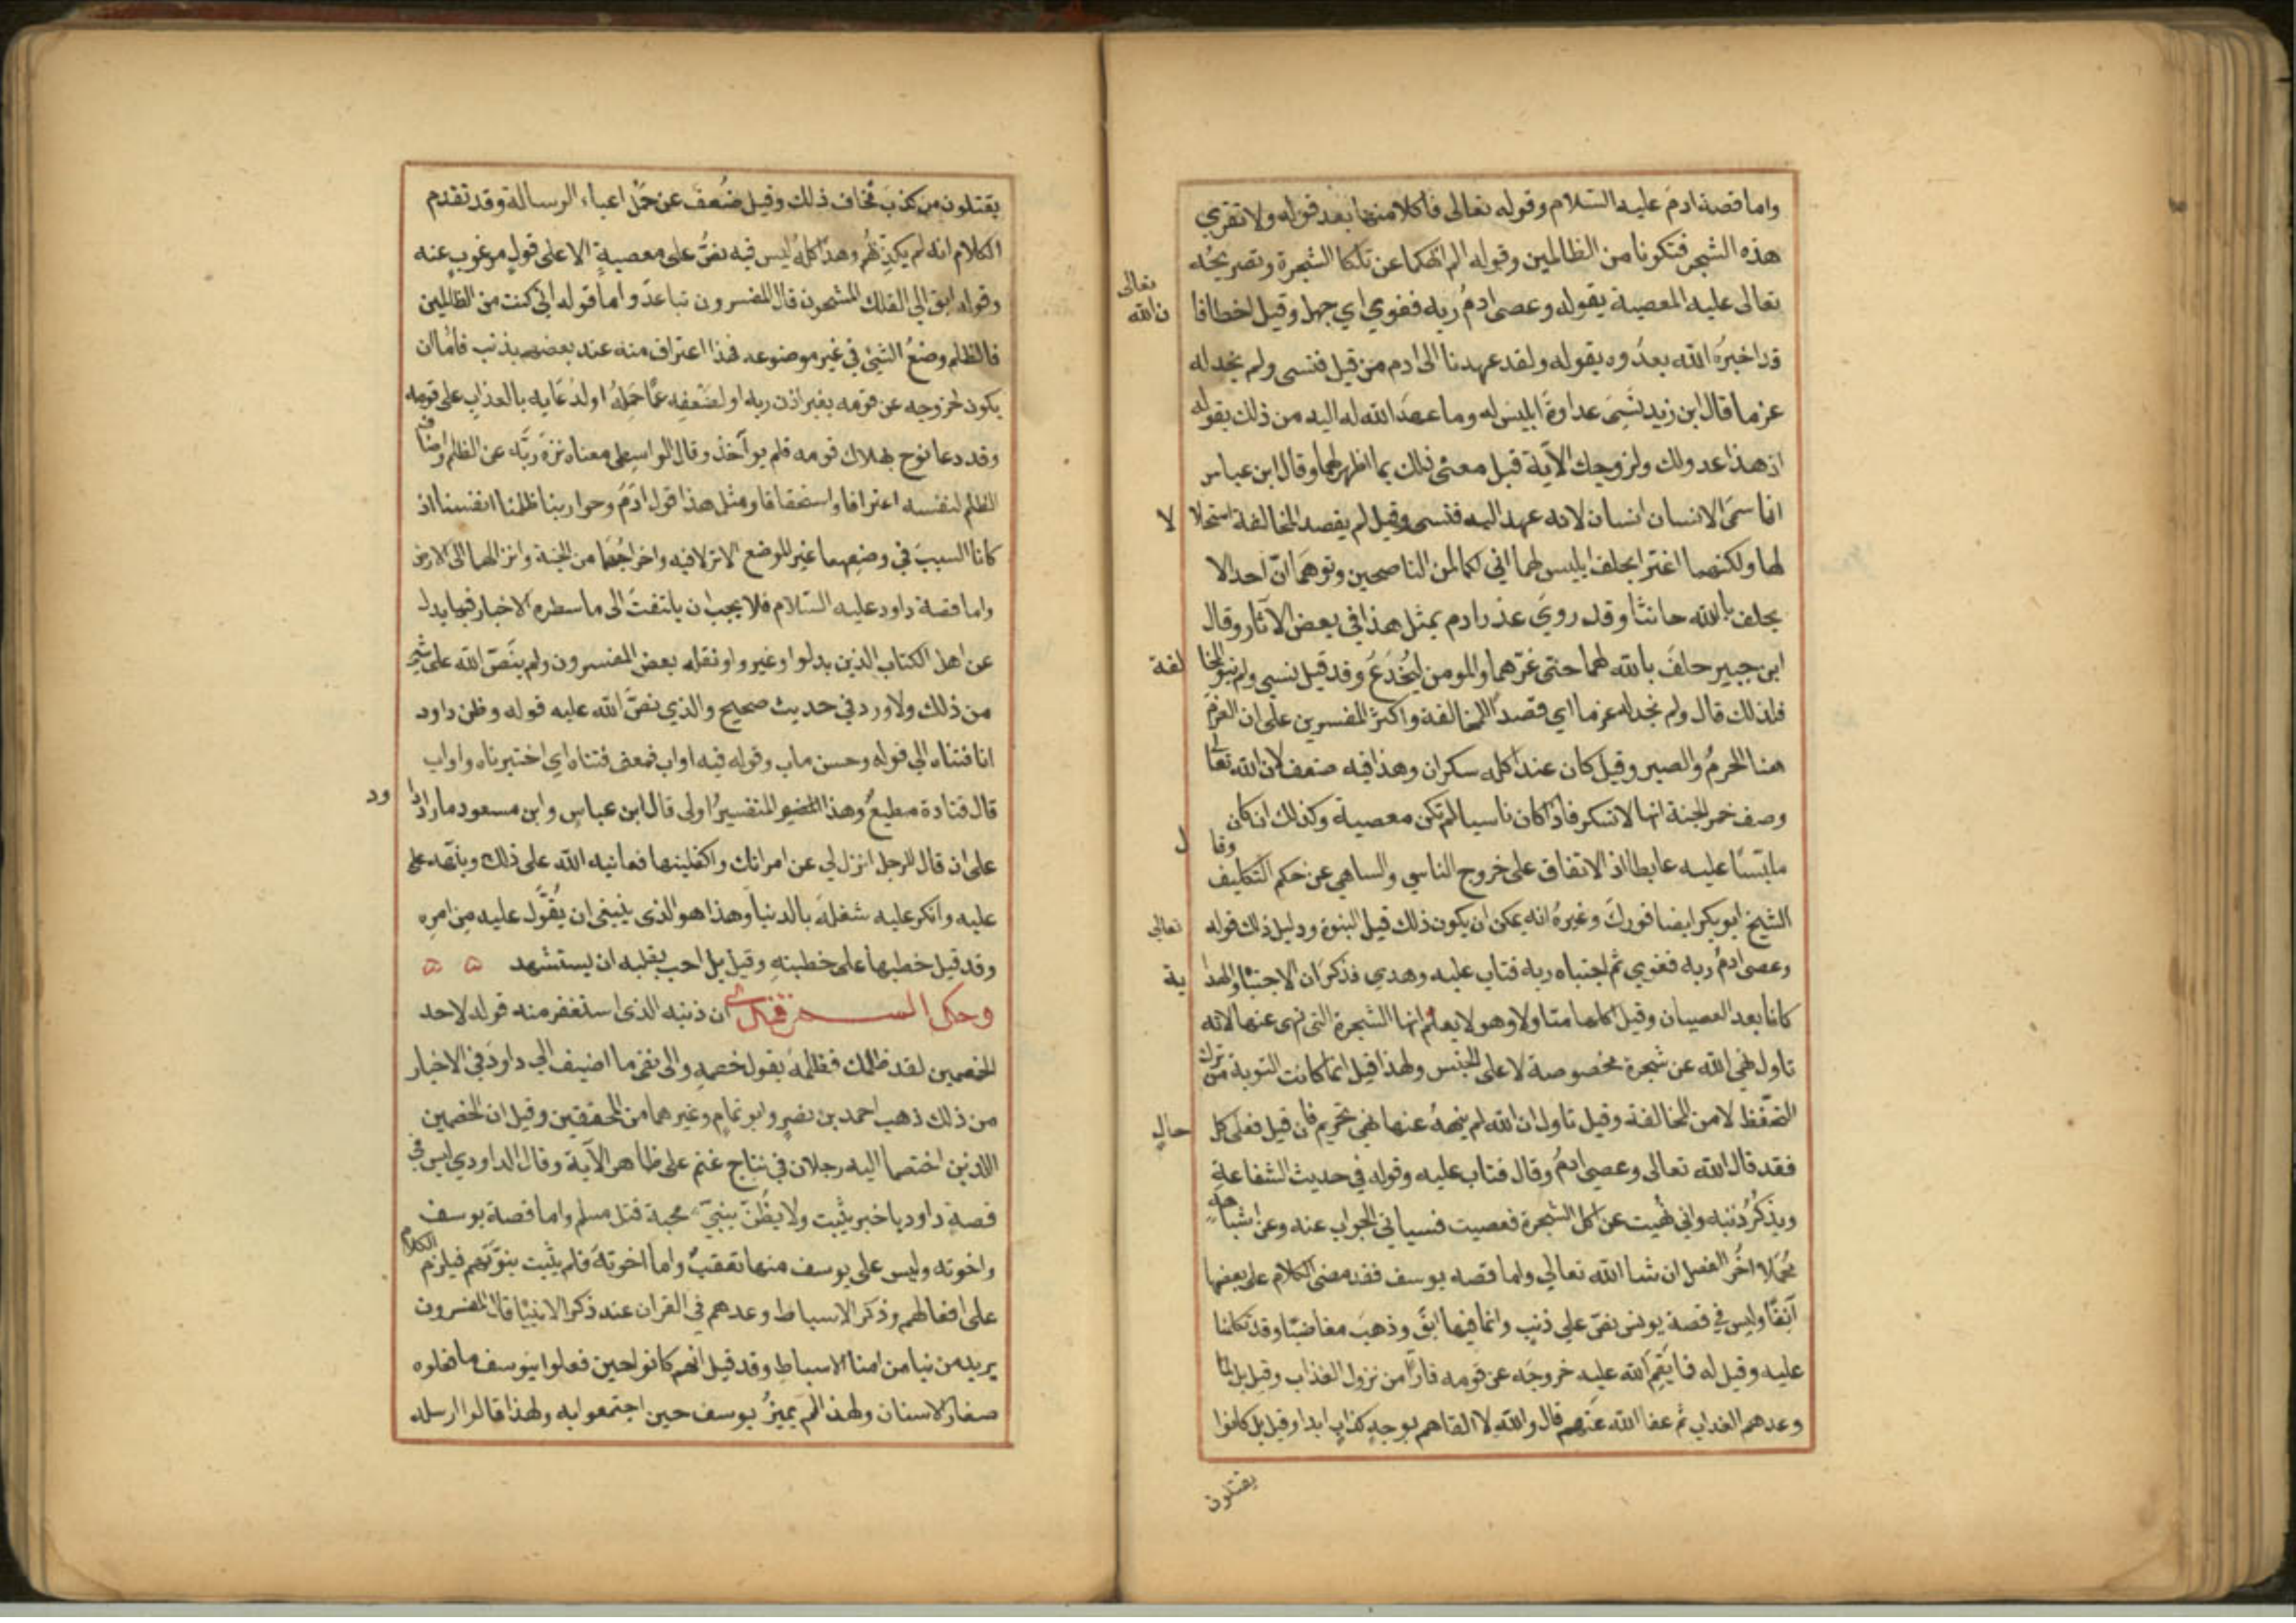 واما قصة ادم عليه السلام وقوله تعالى فاكلا منها بعد قوله ولا تقربي
هذه الشجر فتكونا من الظالمين وقوله الم انهكما عن تلكا الشجرة وتصريحه
تعالى
تعالى عليه المعصية بقوله وعصى ادم ربه فغوي اي جهل وقيل اخطا فا
ن الله
قد اخبر الله بعذره بقوله ولقد عهدنا الى ادم من قبل فنسى ولم نجد له
عزما قال ابن زيد نسي عداوة ابليس له وما عهد الله له اليه من ذلك بقوله
ان هذا عدو لك ولزوجك الآية قيل معنى ذلك بما اظهر لهما وقال ابن عباس
انما سمى الانسان انسان لانه عهد اليه فنسى وقيل لم يقصد المخالفة استحلا
لا
لها ولكنهما اغترا بحلف ابليس لهما اني لكما لمن الناصحين وتوهما ان احدا لا
يحلف بالله حانثا وقد روي عذر ادم بمثل هذا في بعض الآثار وقال
ابن جبير حلف بالله لهما حتى غرهما والمومن يخدع وقد قيل نسي ولم ينو المخا
لفة
فلذلك قال ولم نجد له عزما اي قصدا للمخالفة واكثر المفسرين على ان العزم
هنا الحزم والصبر وقيل كان عند اكله سكران وهذا فيه ضعف لان الله تعالى
وصف خمر الجنة انها لا تسكر فاذا كان ناسيا لم تكن معصية وكذلك ان كان
ملبسا عليه غايطا اذ الاتفاق على خروج الناسي والساهي عن حكم التكليف
وقا
ل
الشيخ ابو بكر ايضا فورك وغيره انه يمكن ان يكون ذلك قبل النبوة ودليل ذلك قوله
تعالى
وعصى ادم ربه فغوي ثم اجتباه ربه فتاب عليه وهدي فذكر ان الاجتبا والهدا
ية
كانا بعد العصيان وقيل اكلها متاولا وهو لا يعلم انها الشجرة التى نهى عنها لانه
تاول نهي الله عن شجرة مخصوصة لا على الجنس ولهذا قيل انما كانت التوبة من ترك
التحفظ لا من المخالفة وقيل تاول ان الله لم ينهه عنها نهي تحريم فان قيل فعلى كل
حال
فقد قال الله تعالى وعصى ادم وقال فتاب عليه وقوله في حديث الشفاعة
ويذكر ذنبه واني نهيت عن اكل الشجرة فعصيت فسياتي الجواب عنه وعن اشباهه
مجملا اخر الفصل ان شا الله تعالي واما قصه يوسف فقد مضى الكلام على بعضها
آنفا وليس في قصة يونس نص على ذنب وانما فيها ابق وذهب مغاضبا وقد تكلمنا
عليه وقيل له فما نقم الله عليه خروجه عن قومه فارا من نزول العذاب وقيل بل لما
وعدهم العذاب ثم عفا الله عنهم قال والله لا القاهم بوجه كذاب ابدا وقيل بل كانوا
يقتلون
يقتلون من كذب فخاف ذلك وقيل ضعف عن حمل اعباء الرسالة وقد تقدم
الكلام انه لم يكذبهم وهذا كله ليس فيه نص على معصية الا على قول مرغوب عنه
وقوله ابق الي الفلك المشحون قال المفسرون تباعد واما قوله اني كنت من الظالمين
فالظلم وضع الشئ في غير موضوعه فهذا اعتراف منه عند بعضهم بذنب فاما ان
يكون لخروجه عن قومه بغير اذن ربه او لضعفه عما حمله او لدعايه بالعذاب على قومه
وقد دعا نوح بهلاك قومه فلم يوآخذ وقال الواسطي معناه نزه ربه عن الظلم واضاف
الظلم لنفسه اعترافا واستحقاقا ومثل هذا قول ادم وحوا ربنا ظلمنا انفسنا اذ
كانا السبب في وضعهما غير الموضع الانزلا فيه واخراجهما من الجنة وانزالهما الى الارض
واما قصة داود عليه السلام فلا يجب ان يلتفت الى ما سطره الاخبار فيها يدل
عن اهل الكتاب الذين بدلوا وغيروا ونقله بعض المفسرون ولم ينص الله على شي
من ذلك ولا ورد في حديث صحيح والذي نص الله عليه قوله وظن داود
انما فتناه الي قوله وحسن ماب وقوله فيه اواب فمعنى فتناه اي اختبرناه واواب
قال قتادة مطيع وهذا التفسير اولى قال ابن عباس وابن مسعود ما زاد دا
ود
على ان قال للرجل انزل لي عن امراتك واكفلينها فعاتبه الله على ذلك ونبهه على
عليه وانكر عليه شغله بالدنيا وهذا هو الذى ينبغى ان يعول عليه من امره
وقد قيل خطبها على خطبته وقيل بل احب بقلبه ان يستشهد
وحكى السمرقندي ان ذنبه الذى استغفر منه قوله لاحد
الخصمين لقد ظلمك فظلمه بقول خصمه والى نفى ما اضيف الي داود في الاخبار
من ذلك ذهب احمد بن نصر وابو تمام وغيرهما من المحققين وقيل ان الخصمين
اللذين اختصما اليه رجلان في نتاج غنم على ظاهر الآية وقال الداودي ليس في
قصة داود يا خبر يثبت ولا يظن بنبي محبة قتل مسلم واما قصة يوسف
واخوته وليس على يوسف منها تعقب واما اخوته فلم يثبت نبوتهم فيلزم الكلام
على افعالهم وذكر الاسباط وعدهم في القران عند ذكر الانبيا قال المفسرون
يريد من نبا من ابنا الاسباط وقد قيل انهم كانوا حين فعلوا بيوسف ما فعلوه
صغار الاسنان ولهذا لم يميز يوسف حين اجتمعوا به ولهذا قالوا ارسله